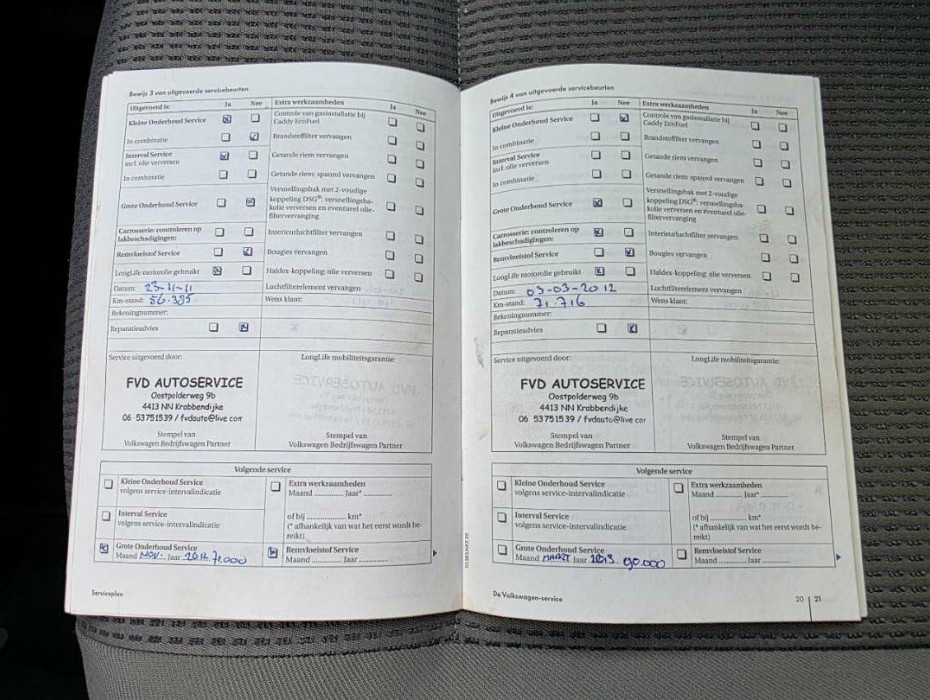 Bewijs 3 van uitgevoerde servicebeurten
Uitgevoerd is: Ja Nee Extra werkzaamheden Ja Nee
Kleine Onderhoud Service
Controle van gasinstallatie bij
Caddy EcoFuel
In combinatie
Brandstoffilter vervangen
Interval Service
incl. olie verversen
Getande riem vervangen
In combinatie
Getande riem: spanrol vervangen
Grote Onderhoud Service
Versnellingsbak met 2-voudige
koppeling DSG®: versnellingsba-
kolie verversen en eventueel olie-
filtervervanging
Carrosserie: controleren op
lakbeschadigingen:
Interieurluchtfilter vervangen
Remvloeistof Service
Bougies vervangen
LongLife motorolie gebruikt
Haldex-koppeling: olie verversen
Datum: 23-11-11
Luchtfilterelement vervangen
Km-stand: 56.395
Wens klant:
Rekeningnummer:
Reparatieadvies
Service uitgevoerd door:
LongLife mobiliteitsgarantie:
FVD AUTOSERVICE
Oostpolderweg 9b
4413 NN Krabbendijke
06-53751539 / fvdauto@live.com
Stempel van
Volkswagen Bedrijfswagen Partner
Stempel van
Volkswagen Bedrijfswagen Partner
Volgende service
Kleine Onderhoud Service
volgens service-intervalindicatie
Extra werkzaamheden
Maand ........... Jaar* ...........
Interval Service
volgens service-intervalindicatie
of bij ............ km*
(* afhankelijk van wat het eerst wordt be-
reikt)
Grote Onderhoud Service
Maand NOV. Jaar 2012 71.000
Remvloeistof Service
Maand ........... Jaar ...........
Serviceplan
Bewijs 4 van uitgevoerde servicebeurten
Uitgevoerd is: Ja Nee Extra werkzaamheden Ja Nee
Kleine Onderhoud Service
Controle van gasinstallatie bij
Caddy EcoFuel
In combinatie
Brandstoffilter vervangen
Interval Service
incl. olie verversen
Getande riem vervangen
In combinatie
Getande riem: spanrol vervangen
Grote Onderhoud Service
Versnellingsbak met 2-voudige
koppeling DSG®: versnellingsba-
kolie verversen en eventueel olie-
filtervervanging
Carrosserie: controleren op
lakbeschadigingen:
Interieurluchtfilter vervangen
Remvloeistof Service
Bougies vervangen
LongLife motorolie gebruikt
Haldex-koppeling: olie verversen
Datum: 03-03-2012
Luchtfilterelement vervangen
Km-stand: 71.716
Wens klant:
Rekeningnummer:
Reparatieadvies
Service uitgevoerd door:
LongLife mobiliteitsgarantie:
FVD AUTOSERVICE
Oostpolderweg 9b
4413 NN Krabbendijke
06 53751539 / fvdauto@live.com
Stempel van
Volkswagen Bedrijfswagen Partner
Stempel van
Volkswagen Bedrijfswagen Partner
Volgende service
Kleine Onderhoud Service
volgens service-intervalindicatie
Extra werkzaamheden
Maand ........... Jaar* ...........
Interval Service
volgens service-intervalindicatie
of bij ............ km*
(* afhankelijk van wat het eerst wordt be-
reikt)
Grote Onderhoud Service
Maand MAART Jaar 2013 90.000
Remvloeistof Service
Maand ........... Jaar ...........
De Volkswagen-service
20 21